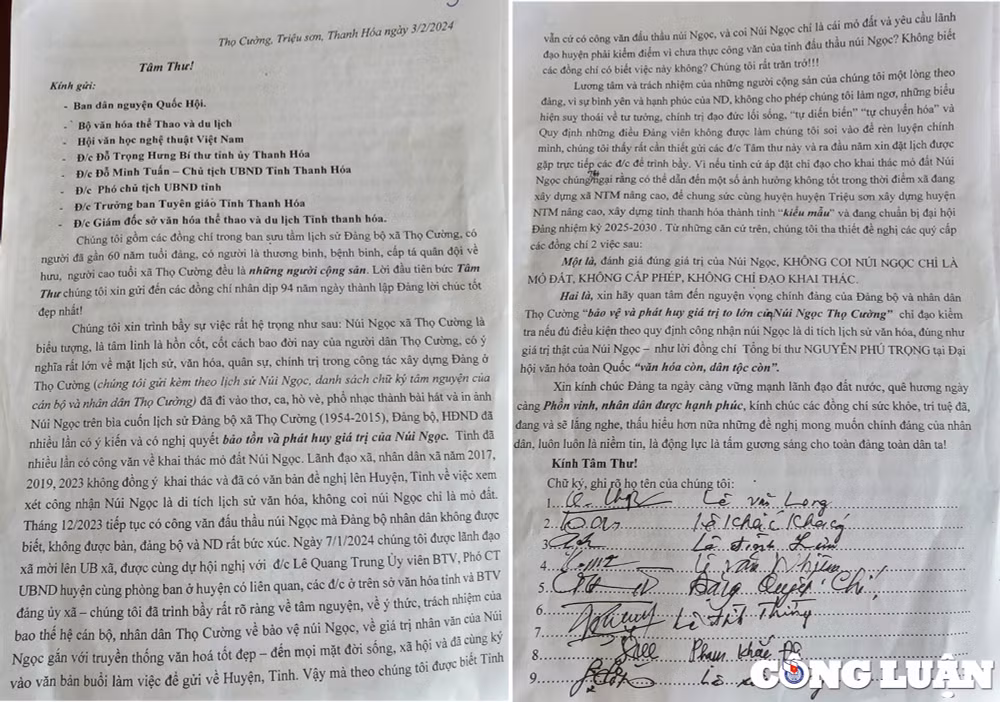 Thọ Cường, Triệu sơn, Thanh Hóa ngày 3/2/2024
Tâm Thư!
Kính gửi:
- Ban dân nguyện Quốc Hội.
- Bộ văn hóa thể Thao và du lịch
- Hội văn học nghệ thuật Việt Nam
- Đ/c Đỗ Trọng Hưng Bí thư tỉnh ủy Thanh Hóa
- Đ/c Đỗ Minh Tuấn – Chủ tịch UBND Tỉnh Thanh Hóa
- Đ/c Phó chủ tịch UBND tỉnh
- Đ/c Trưởng ban Tuyên giáo Tỉnh Thanh Hóa
- Đ/c Giám đốc sở văn hóa thể thao và du lịch Tỉnh Thanh hóa.
Chúng tôi gồm các đồng chí trong ban sưu tầm lịch sử Đảng bộ xã Thọ Cường, có
người đã gần 60 năm tuổi đảng, có người là thương binh, bệnh binh, cấp tá quân đội về
hưu, người cao tuổi xã Thọ Cường đều là những người cộng sản. Lời đầu tiên bức Tâm
Thư chúng tôi xin gửi đến các đồng chí nhân dịp 94 năm ngày thành lập Đảng lời chúc tốt
đẹp nhất!
Chúng tôi xin trình bầy sự việc rất hệ trọng như sau: Núi Ngọc xã Thọ Cường là
biểu tượng, là tâm linh là hồn cốt, cốt cách bao đời nay của người dân Thọ Cường, có ý
nghĩa rất lớn về mặt lịch sử, văn hóa, quân sự, chính trị trong công tác xây dựng Đảng ở
Thọ Cường (chúng tôi gửi kèm theo lịch sử Núi Ngọc, danh sách chữ ký tâm nguyện của
cán bộ và nhân dân Thọ Cường) đã đi vào thơ, ca, hò vè, phổ nhạc thành bài hát và in ảnh
Núi Ngọc trên bìa cuốn lịch sử Đảng bộ xã Thọ Cường (1954-2015), Đảng bộ, HĐND đã
nhiều lần có ý kiến và có nghị quyết bảo tồn và phát huy giá trị của Núi Ngọc. Tỉnh đã
nhiều lần có công văn về khai thác mỏ đất Núi Ngọc. Lãnh đạo xã, nhân dân xã năm 2017,
2019, 2023 không đồng ý khai thác và đã có văn bản đề nghị lên Huyện, Tỉnh về việc xem
xét công nhận Núi Ngọc là di tích lịch sử văn hóa, không coi núi Ngọc chỉ là mỏ đất.
Tháng 12/2023 tiếp tục có công văn đấu thầu núi Ngọc mà Đảng bộ nhân dân không được
biết, không được bàn, đảng bộ và ND rất bức xúc. Ngày 7/1/2024 chúng tôi được lãnh đạo
xã mời lên UB xã, được cùng dự hội nghị với đ/c Lê Quang Trung Ủy viên BTV, Phó CT
UBND huyện cùng phòng ban ở huyện có liên quan, các đ/c ở trên sở văn hóa tỉnh và BTV
đảng ủy xã – chúng tôi đã trình bầy rất rõ ràng về tâm nguyện, về ý thức, trách nhiệm của
bao thế hệ cán bộ, nhân dân Thọ Cường về bảo vệ núi Ngọc, về giá trị nhân văn của Núi
Ngọc gắn với truyền thống văn hoá tốt đẹp – đến mọi mặt đời sống, xã hội và đã cùng ký
vào văn bản buổi làm việc để gửi về Huyện, Tỉnh. Vậy mà theo chúng tôi được biết Tỉnh
vẫn cứ có công văn đấu thầu núi Ngọc, và coi Núi Ngọc chỉ là cái mỏ đất và yêu cầu lãnh
đạo huyện phải kiểm điểm vì chưa thực công văn của tỉnh đấu thầu núi Ngọc? Không biết
các đồng chí có biết việc này không? Chúng tôi rất trăn trở!!!
Lương tâm và trách nhiệm của những người cộng sản của chúng tôi một lòng theo
đảng, vì sự bình yên và hạnh phúc của ND, không cho phép chúng tôi làm ngơ, những biểu
hiện suy thoái về tư tưởng, chính trị đạo đức lối sống, “tự diễn biến” “tự chuyển hóa” và
Quy định những điều Đảng viên không được làm chúng tôi soi vào để rèn luyện chính
mình, chúng tôi thấy rất cần thiết gửi các đ/c Tâm thư này và ra đầu năm xin đặt lịch được
gặp trực tiếp các đ/c để trình bầy. Vì nếu tỉnh cứ áp đặt chỉ đạo cho khai thác mỏ đất Núi
Ngọc chúng ngại rằng có thể dẫn đến một số ảnh hưởng không tốt trong thời điểm xã đang
xây dựng xã NTM nâng cao, để chung sức cùng huyện huyện Triệu sơn xây dựng huyện
NTM nâng cao, xây dựng tỉnh thanh hóa thành tỉnh “kiểu mẫu” và đang chuẩn bị đại hội
Đảng nhiệm kỳ 2025-2030 . Từ những căn cứ trên, chúng tôi tha thiết đề nghị các quý cấp
các đồng chí 2 việc sau:
Một là, đánh giá đúng giá trị của Núi Ngọc, KHÔNG COI NÚI NGỌC CHỈ LÀ
MỎ ĐẤT, KHÔNG CẤP PHÉP, KHÔNG CHỈ ĐẠO KHAI THÁC.
Hai là, xin hãy quan tâm đến nguyện vọng chính đáng của Đảng bộ và nhân dân
Thọ Cường “bảo vệ và phát huy giá trị to lớn của Núi Ngọc Thọ Cường” chỉ đạo kiểm
tra nếu đủ điều kiện theo quy định công nhận núi Ngọc là di tích lịch sử văn hóa, đúng như
giá trị thật của Núi Ngọc – như lời đồng chí Tổng bí thư NGUYỄN PHÚ TRỌNG tại Đại
hội văn hóa toàn Quốc “văn hóa còn, dân tộc còn”.
Xin kính chúc Đảng ta ngày càng vững mạnh lãnh đạo đất nước, quê hương ngày
càng Phồn vinh, nhân dân được hạnh phúc, kính chúc các đồng chí sức khỏe, trí tuệ đã,
đang và sẽ lắng nghe, thấu hiểu hơn nữa những đề nghị mong muốn chính đáng của nhân
dân, luôn luôn là niềm tin, là động lực là tấm gương sáng cho toàn đảng toàn dân ta!
Kính Tâm Thư!
Chữ ký, ghi rõ họ tên của chúng tôi:
1 Lê văn Long
2 Lê Khắc
3 Lê đình
4 Lê văn Nhiệm
5 Đặng Quyết Chí
6
7 Lê Thắng
8 Phạm Khắc
9 Lê
CÔNG LUẬN